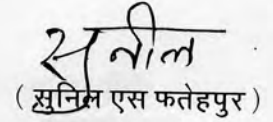 सुनील
(सुनिल एस फतेहपुर)